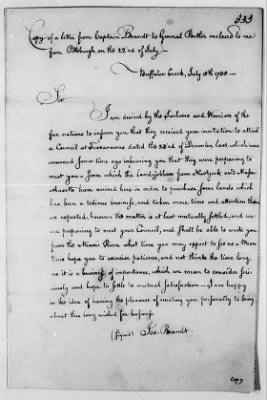 333
Copy of a letter from Captain Brandt to General Butler inclosed to me
from Pittsburgh on the 22nd of July.
Buffaloe Creek, July 1788
Sir
I am desired by the Sachems and Warriors of the
five nations to inform you that they received your invitation to attend
a Council at Tuscarawas dated the 22d of December last, which was
answered some time ago informing you that they were preparing to
meet you. Since which the Landjobbers from Newyork and Massa-
chusetts have arrived here in order to purchase some lands which
has been a tedious business, and taken more time and attention than
we expected; however the matter is at last mutually settled, and we
are preparing to meet your Council, and shall be able to write you
from the Miami River what time you may expect to see us. Mean
time hope you to exercise patience, and not think the time long,
as it is a business of importance, which we mean to consider seri-
ously and hope to settle to mutual satisfaction. I am happy
in the idea of having the pleasure of meeting you personally to bring
about this long wished for business.
(Signed) Jos. Brandt.
Copy